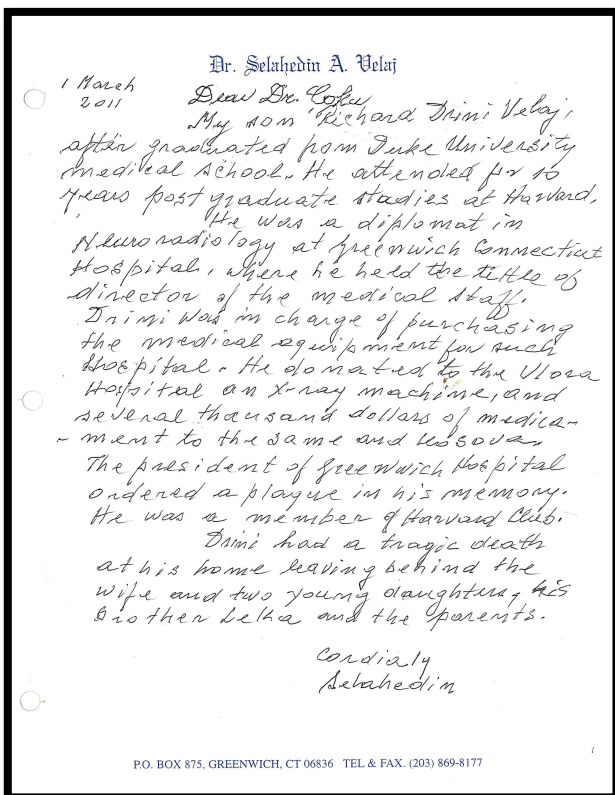 Dr. Selahedin A. Velaj
1 March
2011
Dear Dr. Coku
My son Richard Drini Velaj,
after graduated from Duke University
medical school. He attended for 10
years post graduate studies at Harvard.
He was a diplomat in
Neuroradiology at Greenwich Connecticut
Hospital, where he held the tittle of
director of the medical staff.
Drini was in charge of purchasing
the medical equipment for such
Hospital. He donated to the Vlora
Hospital an X-ray machine, and
several thousand dollars of medica-
- ment to the same and Kosova.
The president of Greenwich Hospital
ordered a plaque in his memory.
He was a member of Harvard Club.
Drini had a tragic death
at his home leaving behind the
wife and two young daughters, his
Brother Leka and the parents.
Cordialy
Selahedin
P.O. BOX 875, GREENWICH, CT 06836 TEL & FAX. (203) 869-8177